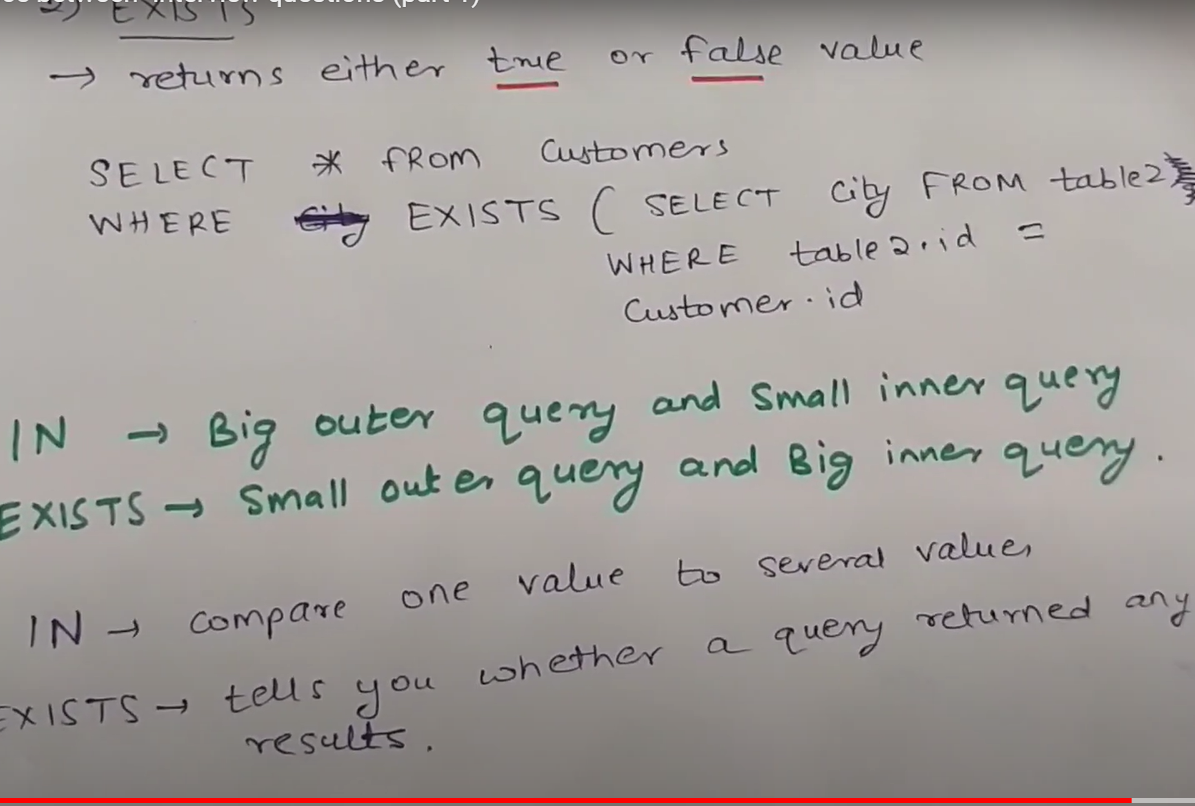 interview questions (part 1)
2) EXISTS
→ returns either true or false value
SELECT * FROM Customers
WHERE EXISTS ( SELECT City FROM table2
WHERE table2.id =
Customer.id
IN → Big outer query and Small inner query
EXISTS → Small outer query and Big inner query.
IN → compare one value to several values
EXISTS → tells you whether a query returned any
results.